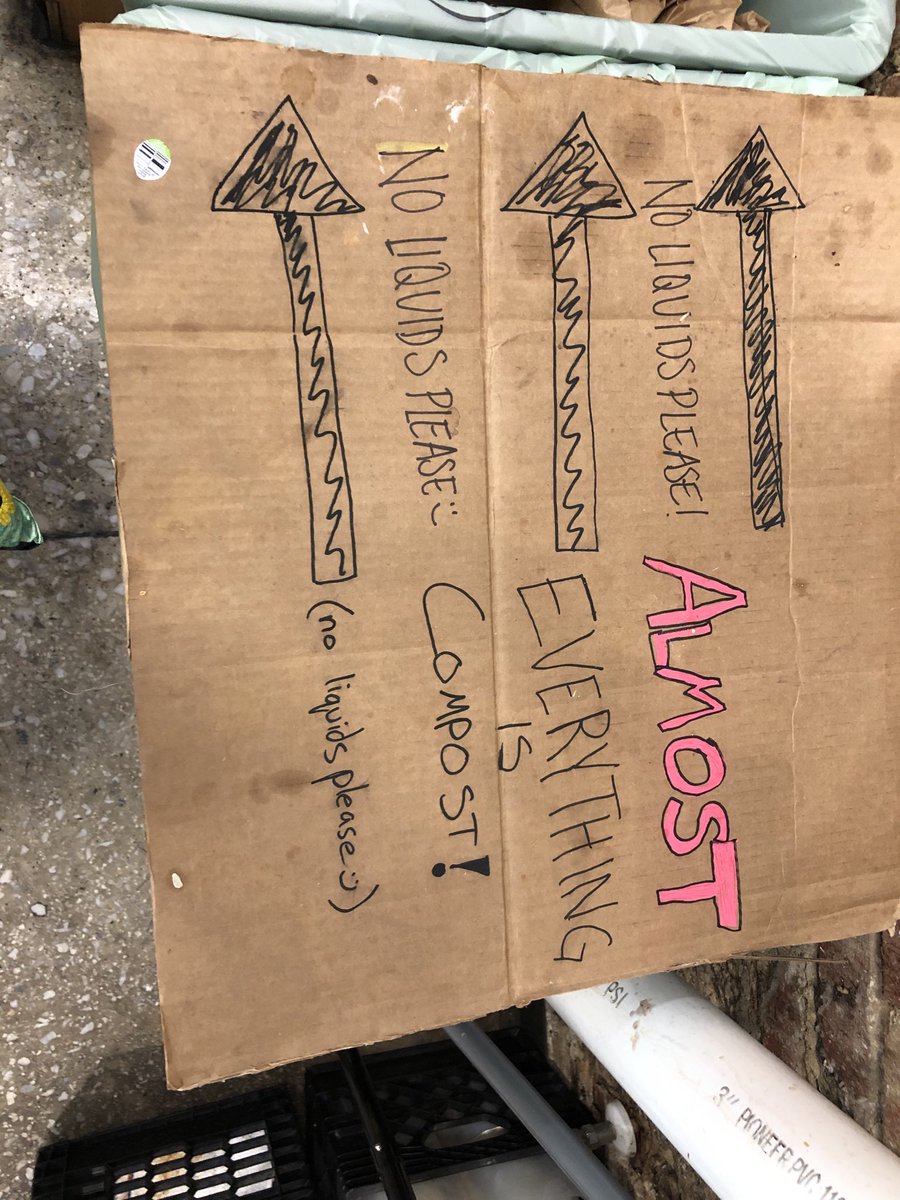 NO LIQUIDS PLEASE!
ALMOST
EVERYTHING
IS
NO LIQUIDS PLEASE :)
COMPOST!
(no liquids please :))
PSI
3" PIONEER PVC